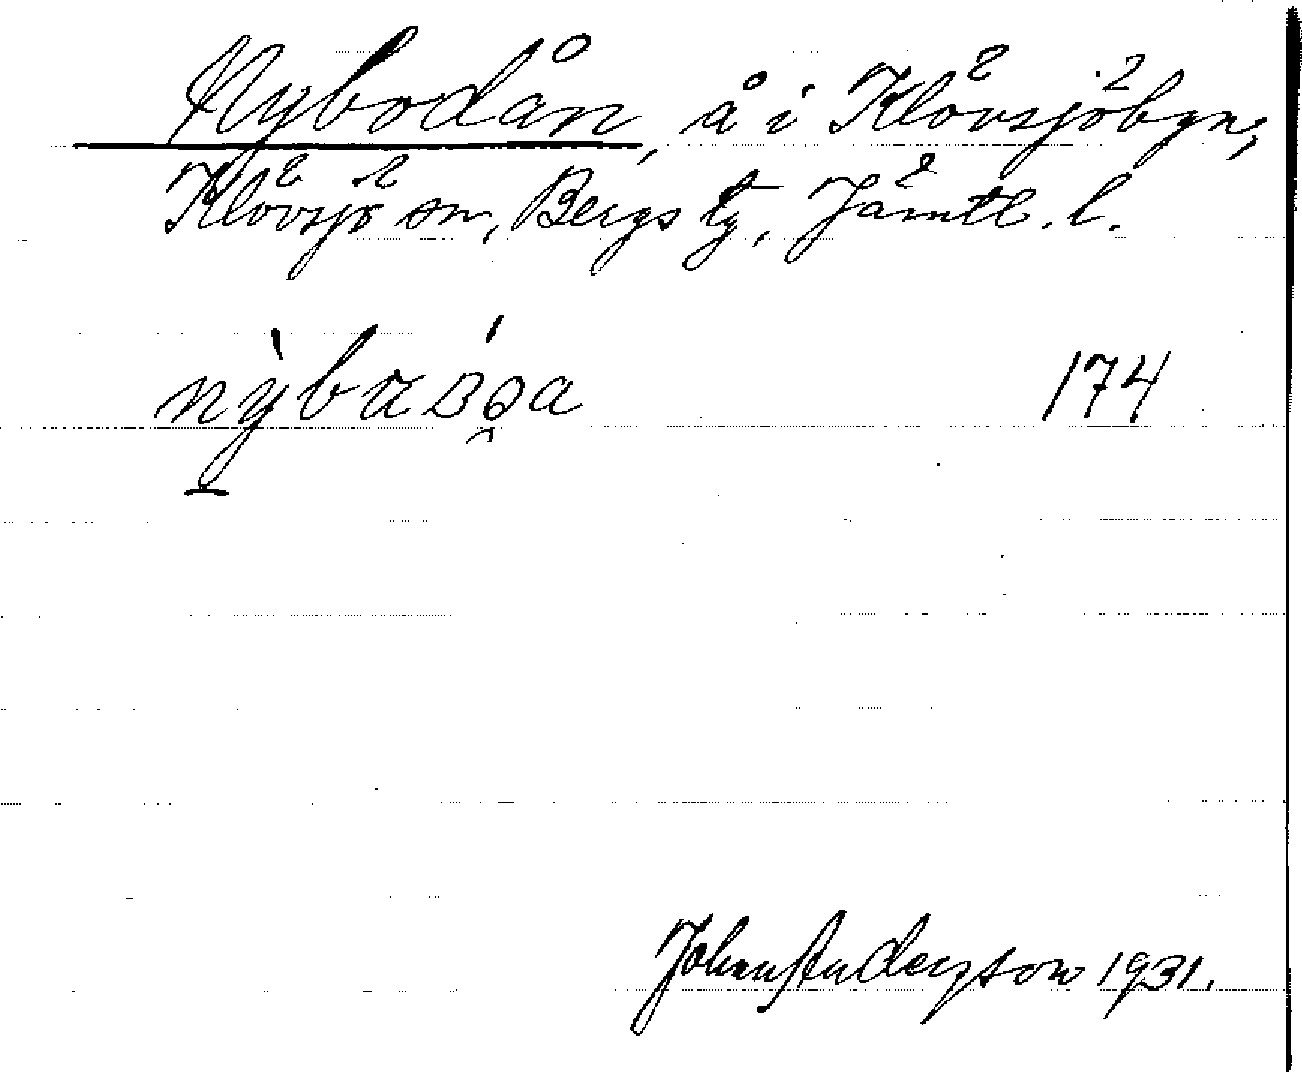 Nybodån, å i Klövsjöbyn,
Klövsjö sn, Bergs tg, Jämtl. l.
174
Johan Anderzson 1931.